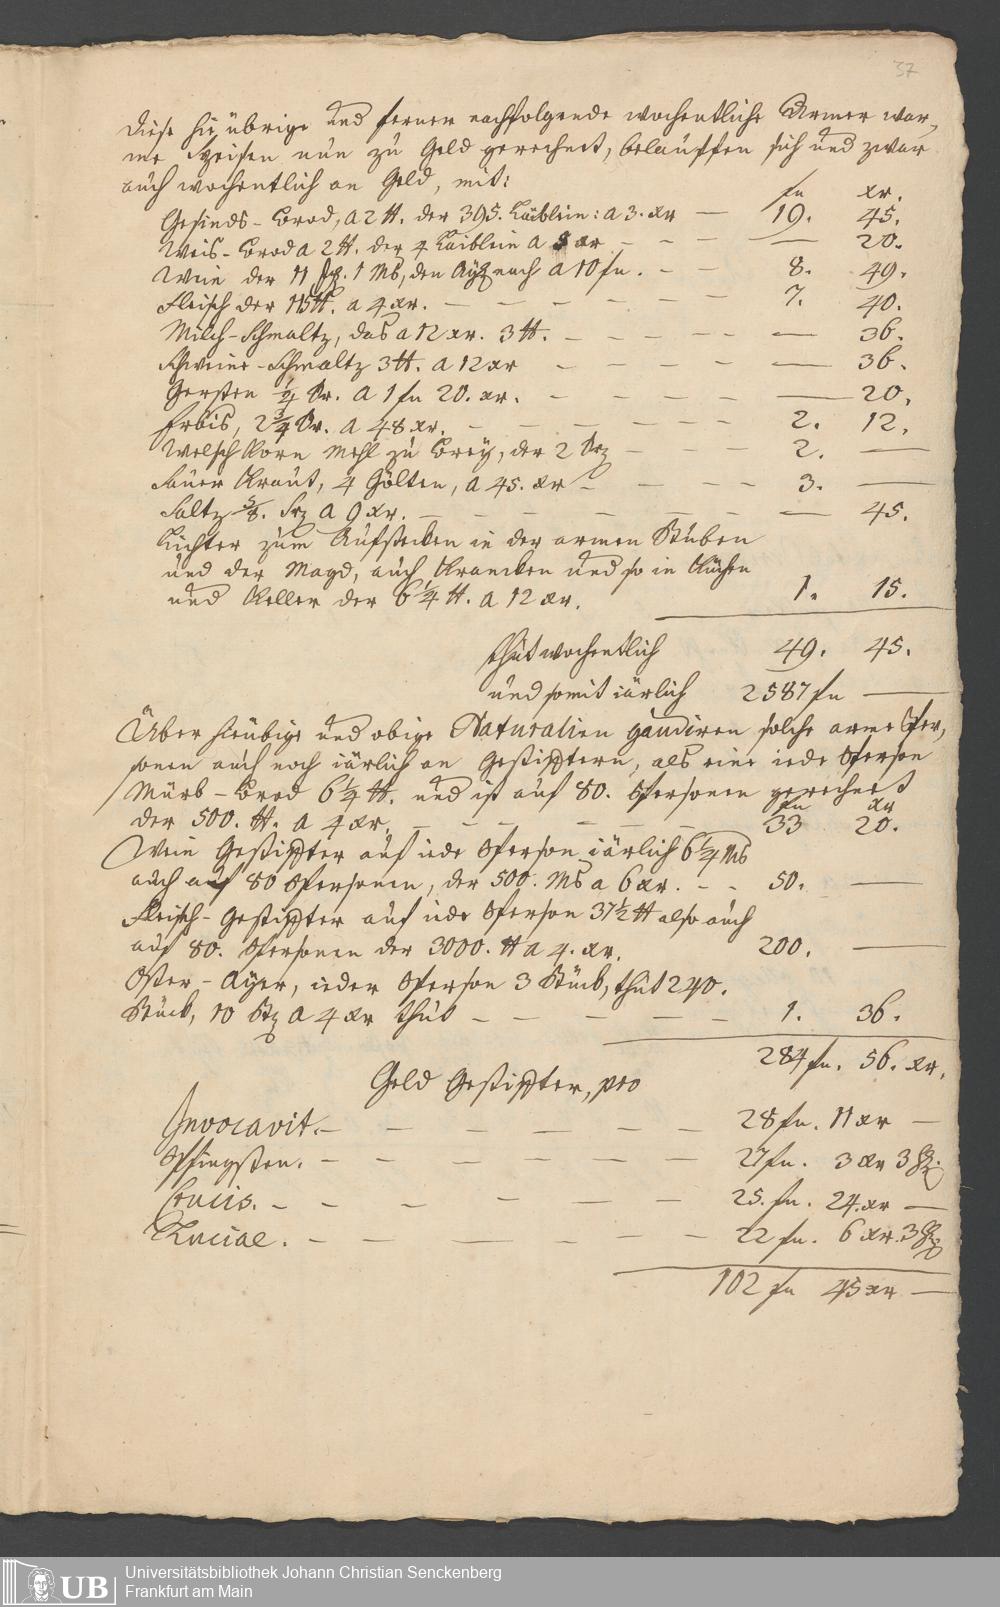 37
Diese hie übrige und ferner nachfolgende wochentliche Armer war-
me Speisen nun zu Geld gerechnet, belauffen sich und zwar
auch wochentlich an Geld, mit:
fn xr.
Gesinds-Brod, a 2 ℔. der 395. Laiblein: a 3. xr — 19. 45.
Weis-Brod a 2 ℔. der 4 Laiblein a 5 xr — — — — 20.
Wein der 11 1 Ms, den nach a 10 fn. — — 8. 49.
Fleisch der 115 ℔. a 4 xr. — — — — — — 7. 40.
Milch-Schmaltz, das a 12 xr. 3 ℔. — — — — — 36.
Schweine-Schmaltz 3 ℔. a 12 xr — — — — — 36.
Gersten ¼ Sr. a 1 fn 20. xr. — — — — — 20.
Erbis, 2¾ Sr. a 48 xr. — — — — — — 2. 12.
Welsch Korn Mehl zu Brey, der 2 Srj — — — 2. —
Sauer Kraut, 4 Gölten, a 45. xr — — — — 3. —
Saltz 5/8. Srj a 9 xr. — — — — — — — 45.
Lichter zum Aufstecken in der armen Stuben
und der Magd, auch Krancken und so in Küchen
und Keller der 6¼ ℔. a 12 xr. 1. 15.
thut wochentlich 49. 45.
und somit iärlich 2587 fn —
Über hieübige und obige Naturalien gaudiren solche arme Per-
sonen auch noch iärlich an Gestifftern, als eine iede Person
Mürb-Brod 6¼ ℔. und ist auf 80. Personen gerechnet
fn xr
der 500. ℔. a 4 xr. — — — — — — 33 20.
Wein Gestiffter auf iede Person iärlich 6¼ Ms
auch auf 80 Personen, der 500. Ms a 6 xr. — — 50. —
Fleisch-Gestiffter auf iede Person 37½ ℔ also auch
auf 80. Personen der 3000. ℔ a 4. xr. 200. —
Oster-Ayer, ieder Person 3 Stück, thut 240.
Stück, 10 Stz a 4 xr thut — — — — — — 1. 36.
284 fn. 56. xr.
Geld Gestiffter, pro
Invocavit. — — — — — — 28 fn. 11 xr —
Pfingsten. — — — — — — 27 fn. 3 xr 3
Crucis. — — — — — — 25. fn. 24. xr —
Luciae. — — — — — — 22 fn. 6 xr. 3
102 fn 45 xr —
UB
Universitätsbibliothek Johann Christian Senckenberg
Frankfurt am Main